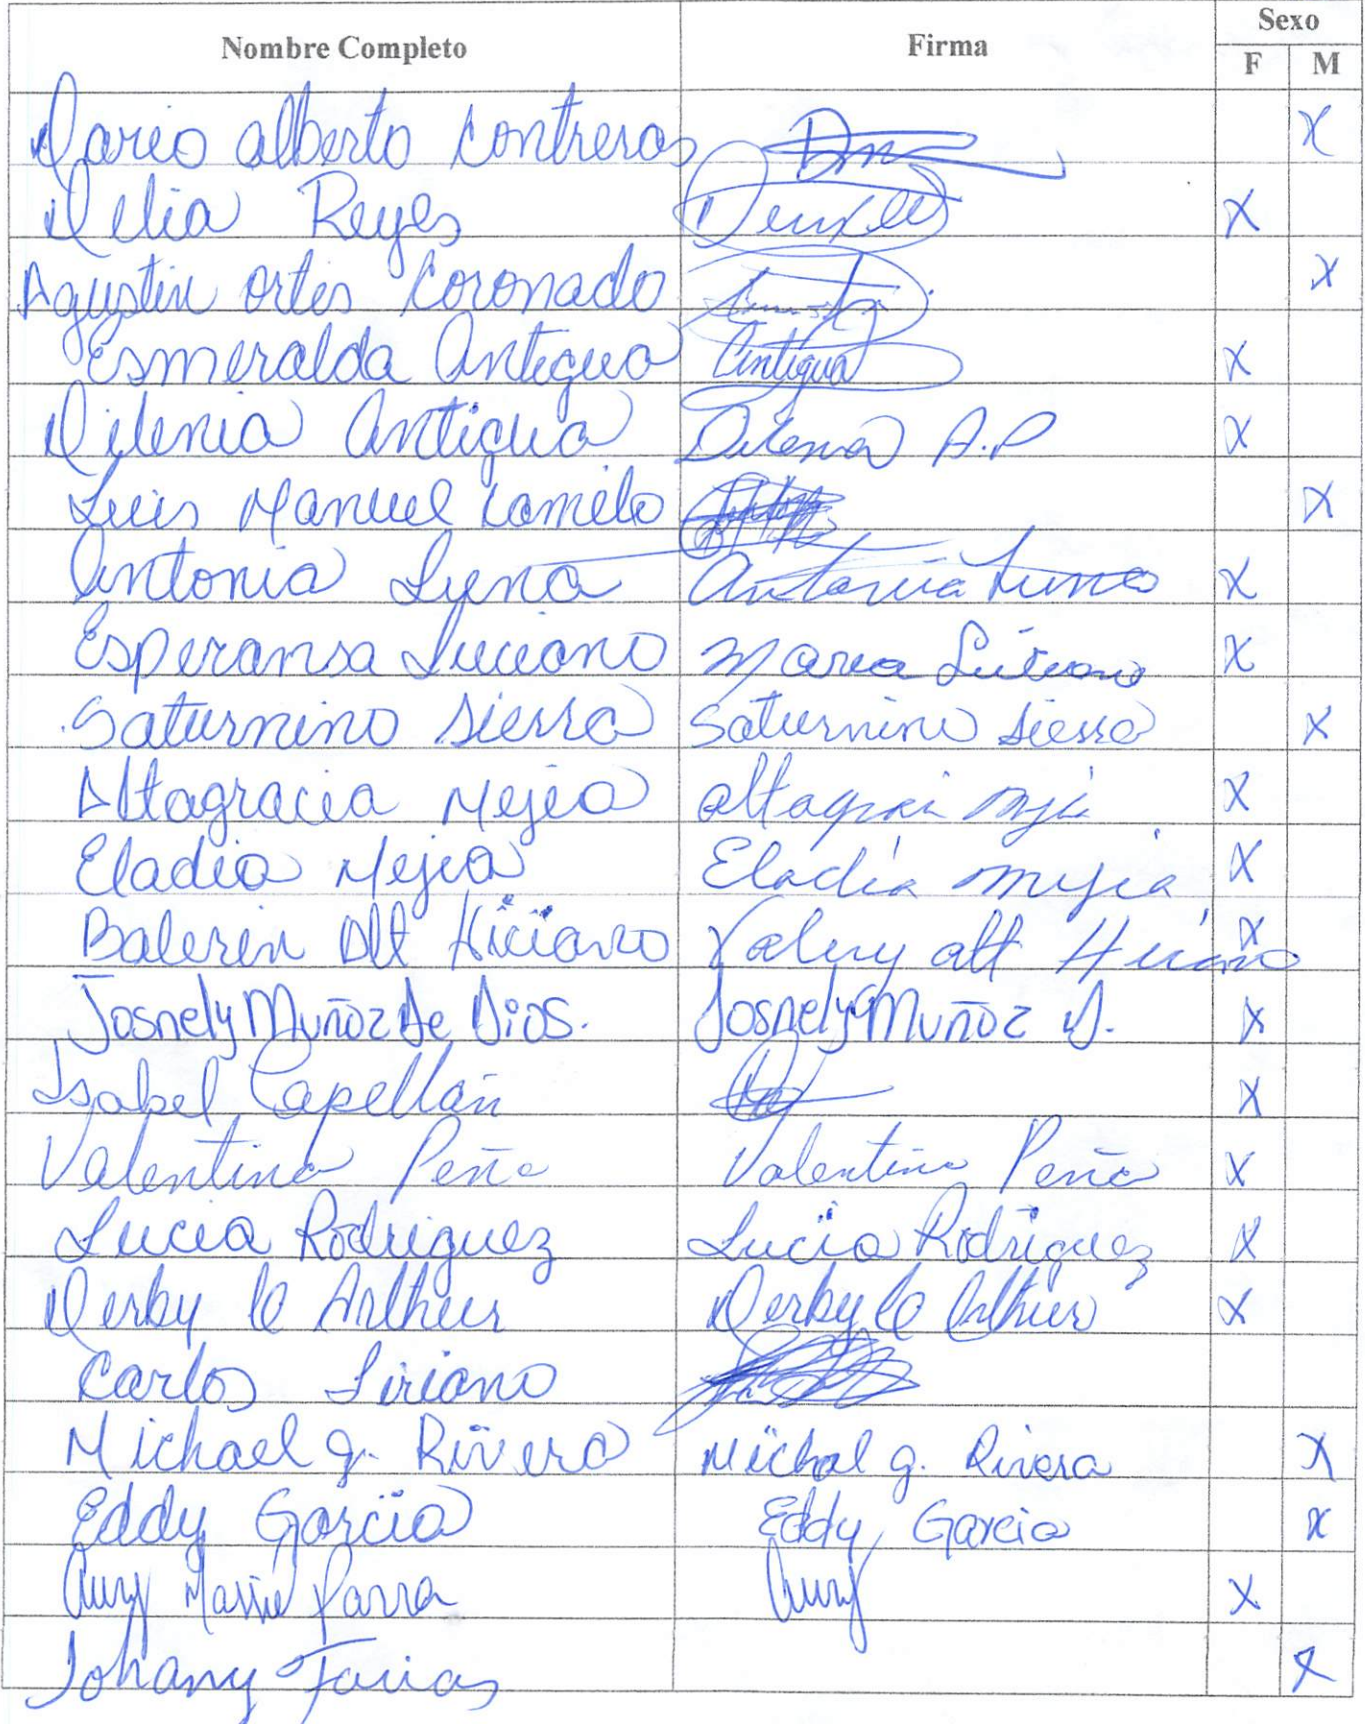 Nombre Completo Firma Sexo
F M
Dario alberto Contreras X
Delia Reyes X
Agustin ortis Coronado X
Esmeralda Antigua Antigua X
Dilenia Antigua Dilenia A.P X
Luis Manuel Camilo X
Antonia Luna Antonia Luna X
Esperansa Luciano Maria Luciano X
Saturnino Sierra Saturnino Sierra X
Altagracia Mejia altagracia mejia X
Eladia Mejia Eladia mejia X
Balerin Alt Hiciano Valery alt Hiciano X
Josnely Muñoz De Dios. Josnely Muñoz D. X
Isabel Capellán X
Valentina Peña Valentina Peña X
Lucia Rodriguez Lucia Rodriguez X
Derby le Arthur Derby le Arthur X
Carlos Liriano
Michael g. Rivera Michal g. Rivera X
Eddy Garcia Eddy Garcia X
Aury Massiel Parra Aury X
Johany Farias X